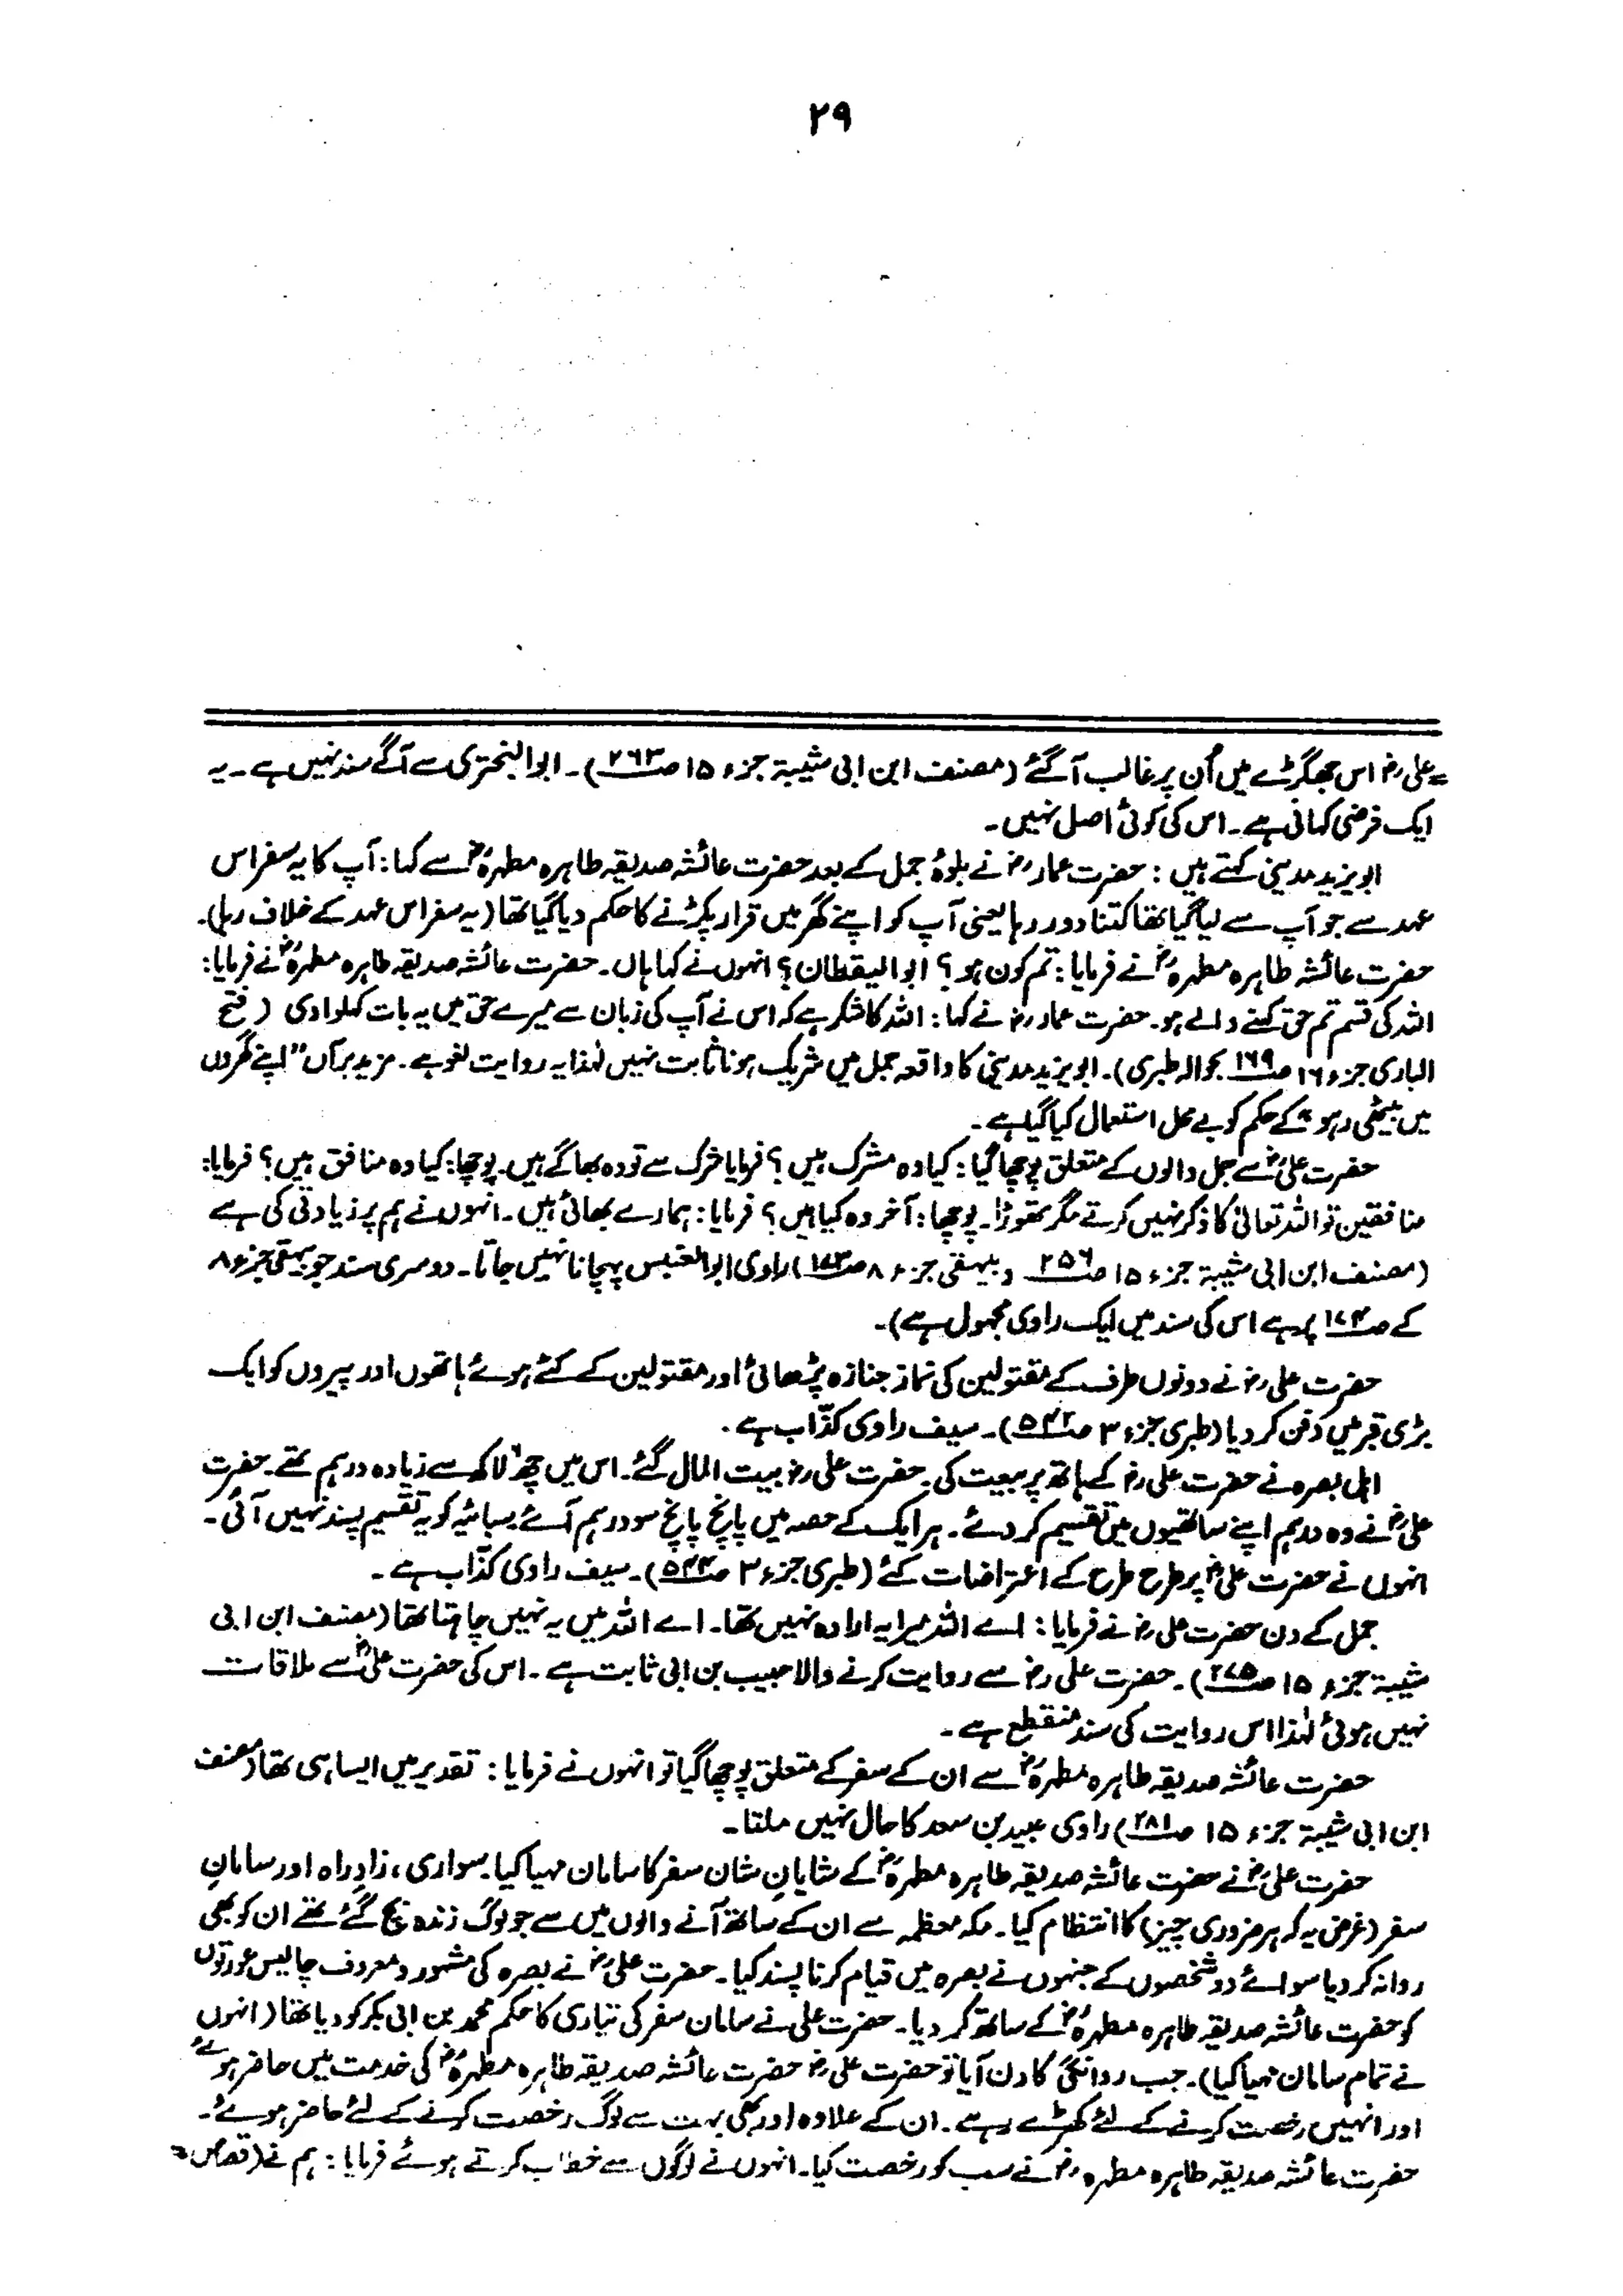 ۲۹
= علی رضؓ اس جھگڑے میں اُن پر غالب آگئے (مصنف ابن ابی شیبۃ جزء ۱۵ صـ۲۶۳)۔ ابوالبختری سے آگے سند نہیں ہے۔ یہ
ایک فرضی کہانی ہے۔ اس کی کوئی اصل نہیں۔
ابو یزید مدینی کہتے ہیں : حضرت عمار رضؓ نے بلوۂ جمل کے بعد حضرت عائشہ صدیقہ طاہرہ مطہرہ رضؓ سے کہا : آپ کا یہ سفر اس
عہد سے جو آپ سے لیا گیا تھا کتنا دور رہا یعنی آپ کو اپنے گھر میں قرار پکڑنے کا حکم دیا گیا تھا (یہ سفر اس عہد کے خلاف رہا)۔
حضرت عائشہ طاہرہ مطہرہ رضؓ نے فرمایا : تم کون ہو ؟ ابوالیقظان ؟ انہوں نے کہا ہاں۔ حضرت عائشہ صدیقہ طاہرہ مطہرہ رضؓ نے فرمایا :
اللہ کی قسم تم حق کہنے والے ہو۔ حضرت عمار رضؓ نے کہا : اللہ کا شکر ہے کہ اس نے آپ کی زبان سے میرے حق میں یہ بات کہلوادی (فتح
الباری جزء ۱۶ صـ۱۶۹ بحوالہ طبری)۔ ابو یزید مدینی کا واقعہ جمل میں شریک ہونا ثابت نہیں لہٰذا یہ روایت لغو ہے۔ مزید برآں "اپنے گھروں
میں بیٹھی رہو" کے حکم کو بے محل استعمال کیا گیا ہے۔
حضرت علی رضؓ سے جمل والوں کے متعلق پوچھا گیا : کیا وہ مشرک ہیں ؟ فرمایا شرک سے تو وہ بھاگے ہیں۔ پوچھا : کیا وہ منافق ہیں ؟ فرمایا :
منافقین تو اللہ تعالیٰ کا ذکر نہیں کرتے مگر تھوڑا۔ پوچھا : آخر وہ کیا ہیں ؟ فرمایا : ہمارے بھائی ہیں۔ انہوں نے ہم پر زیادتی کی ہے
(مصنف ابن ابی شیبۃ جزء ۱۵ صـ۲۵۶ و بیہقی جزء ۸ صـ۱۷۳) راوی ابوالعنبس پہچانا نہیں جاتا۔ دوسری سند جو بیہقی جزء ۸
کے صـ۱۷۴ پر ہے اس کی سند میں ایک راوی مجہول ہے)۔
حضرت علی رضؓ نے دونوں طرف کے مقتولین کی نماز جنازہ پڑھائی اور مقتولین کے کٹے ہوئے ہاتھوں اور پیروں کو ایک
بڑی قبر میں دفن کر دیا (طبری جزء ۳ صـ۵۴۲)۔ سیف راوی کذّاب ہے۔
اہل بصرہ نے حضرت علی رضؓ کے ہاتھ پر بیعت کی۔ حضرت علی رضؓ بیت المال گئے۔ اس میں چھ لاکھ سے زیادہ درہم تھے۔ حضرت
علی رضؓ نے وہ درہم اپنے ساتھیوں میں تقسیم کر دئے۔ ہر ایک کے حصہ میں پانچ پانچ سو درہم آئے۔ سبائیہ کو یہ تقسیم پسند نہیں آئی۔
انہوں نے حضرت علی رضؓ پر طرح طرح کے اعتراضات کئے (طبری جزء ۳ صـ۵۴۴)۔ سیف راوی کذّاب ہے۔
جمل کے دن حضرت علی رضؓ نے فرمایا : اے اللہ میرا یہ ارادہ نہیں تھا۔ اے اللہ میں یہ نہیں چاہتا تھا (مصنف ابن ابی
شیبۃ جزء ۱۵ صـ۲۷۵)۔ حضرت علی رضؓ سے روایت کرنے والا حبیب بن ابی ثابت ہے۔ اس کی حضرت علی رضؓ سے ملاقات
نہیں ہوئی لہٰذا اس روایت کی سند منقطع ہے۔
حضرت عائشہ صدیقہ طاہرہ مطہرہ رضؓ سے ان کے سفر کے متعلق پوچھا گیا تو انہوں نے فرمایا : تقدیر میں ایسا ہی تھا (مصنف
ابن ابی شیبۃ جزء ۱۵ صـ۲۸۱) راوی عبید بن سعد کا حال نہیں ملتا۔
حضرت علی رضؓ نے حضرت عائشہ صدیقہ طاہرہ مطہرہ رضؓ کے شایانِ شان سفر کا سامان مہیا کیا۔ سواری، زادِ راہ اور سامانِ
سفر (غرض یہ کہ ہر ضروری چیز) کا انتظام کیا۔ مکہ معظمہ سے ان کے ساتھ آنے والوں میں سے جو لوگ زندہ بچ گئے تھے ان کو بھی
روانہ کر دیا سوائے دو شخصوں کے جنہوں نے بصرہ میں قیام کرنا پسند کیا۔ حضرت علی رضؓ نے بصرہ کی مشہور و معروف چالیس عورتوں
کو حضرت عائشہ صدیقہ طاہرہ مطہرہ رضؓ کے ساتھ کر دیا۔ حضرت علی نے سامان سفر کی تیاری کا حکم محمد بن ابی بکر کو دیا تھا (انہوں
نے تمام سامان مہیا کیا)۔ جب روانگی کا دن آیا تو حضرت علی رضؓ حضرت عائشہ صدیقہ طاہرہ مطہرہ رضؓ کی خدمت میں حاضر ہوئے
اور انہیں رخصت کرنے کے لئے کھڑے رہے۔ ان کے علاوہ اور بھی بہت سے لوگ رخصت کرنے کے لئے حاضر ہوئے۔
حضرت عائشہ صدیقہ طاہرہ مطہرہ رضؓ نے سب کو رخصت کیا۔ انہوں نے لوگوں سے خطاب کرتے ہوئے فرمایا : ہم نے (قصاص =